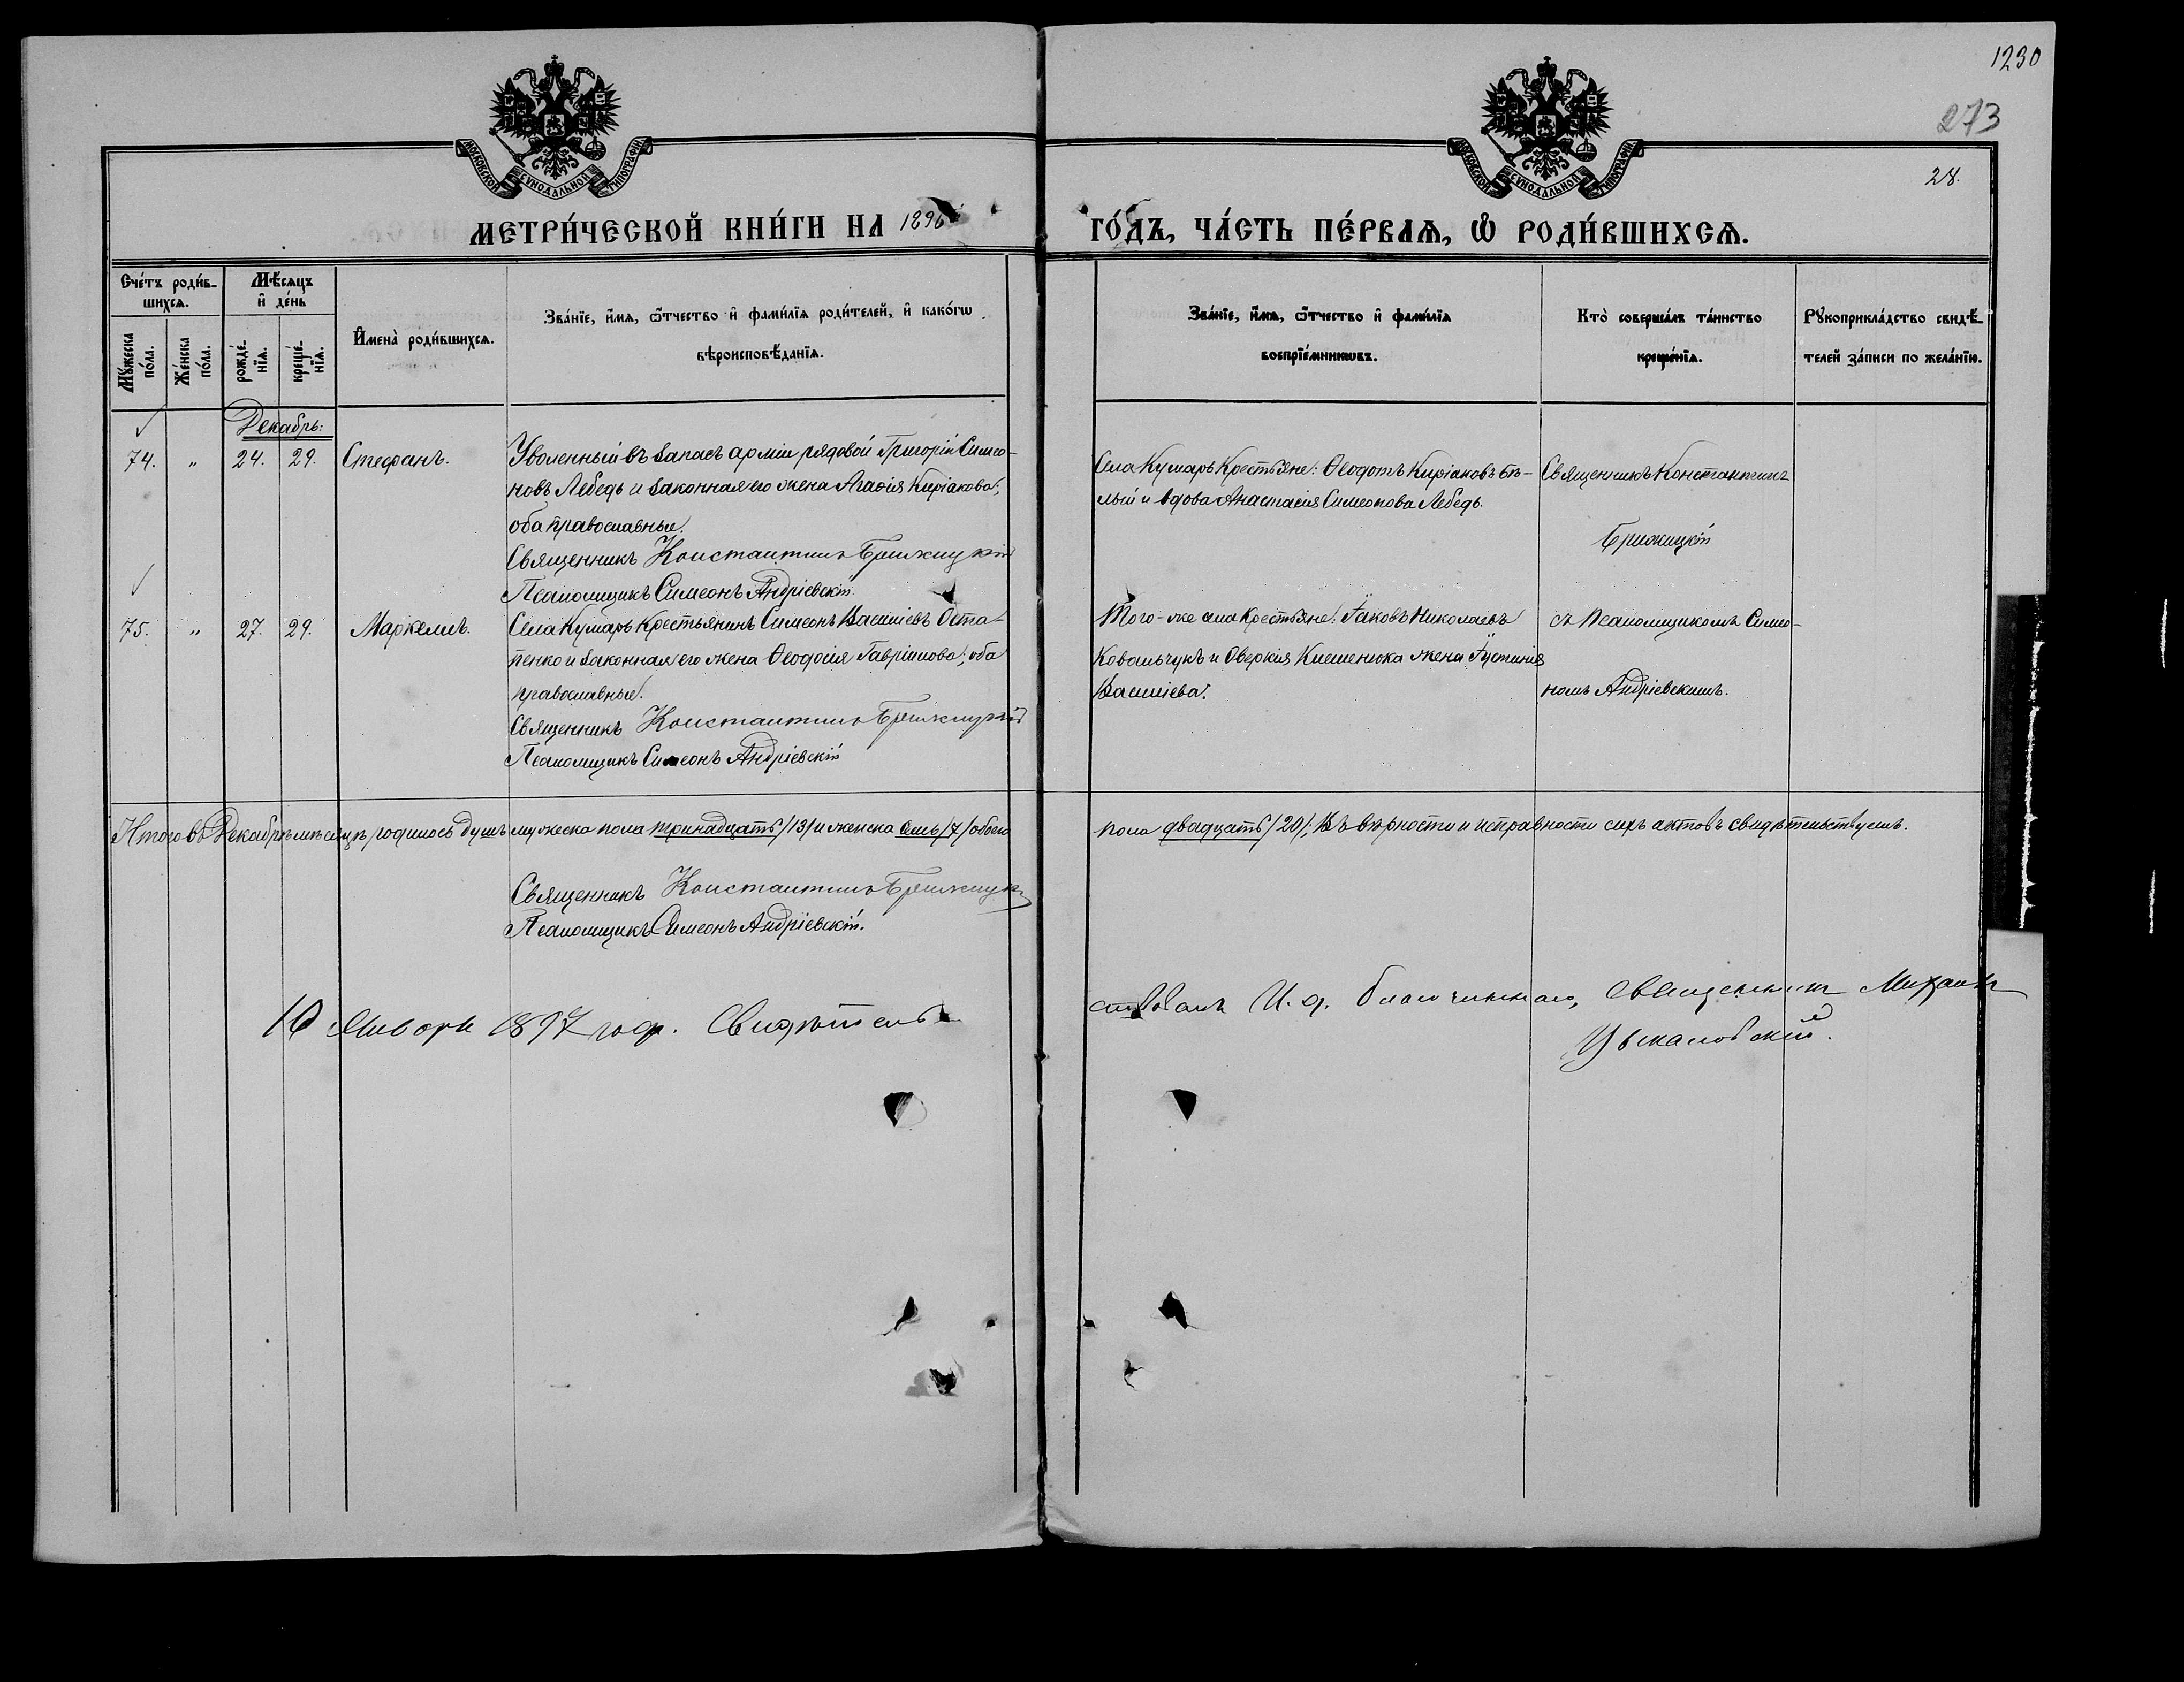 1230
273
28.
МОСКОВСКОЙ СѴНОДАЛЬНОЙ ТИПОГРАФІИ
МОСКОВСКОЙ СѴНОДАЛЬНОЙ ТИПОГРАФІИ
МЕТРИ́ЧЕСКОЙ КНИ́ГИ НА 1896 ГО́ДЪ, ЧА́СТЬ ПЕ́РВАѦ, Ѡ РОДИ́ВШИХСѦ.
Сче́тъ роди́в-
шихсѧ.
Мꙋ́жеска по́ла.
Же́нска по́ла.
Мѣ́сѧцъ
и҆ де́нь
рожде́-
нїѧ.
креще́-
нїѧ.
И҆мена̀ роди́вшихсѧ.
Зва́нїе, и҆́мѧ, ѻ҆́тчество и҆ фами́лїѧ роди́телей, и҆ како́гѡ
вѣроисповѣ́данїѧ.
Зва́нїе, и҆́мѧ, ѻ҆́тчество и҆ фами́лїѧ
воспрїе́мникѡвъ.
Кто̀ соверша́лъ та́инство
креще́нїѧ.
Рꙋкоприкла́дство свидѣ́-
телей за́писи по жела́нїю.
Декабрь:
74. " 24. 29. Стефанъ.
Уволенный въ запасъ арміи рядовой Григорій Симео-
новъ Лебедь и законная его жена Агаѳія Киріакова;
оба православные.
Священникъ Константинъ Бржицкій
Псаломщикъ Симеонъ Андріевскій
Села Кумаръ Крестьяне: Ѳеодотъ Киріаковъ Бѣ-
лый и вдова Анастасія Симеонова Лебедь.
Священникъ Константинъ
Бржицкій
75. " 27. 29. Маркеллъ.
Села Кумаръ Крестьянинъ Симеонъ Василіевъ Оста-
пенко и законная его жена Ѳеодосія Гавріилова; оба
православные.
Священникъ Константинъ Бржицкій
Псаломщикъ Симеонъ Андріевскій
Того-же села Крестьяне: Іаковъ Николаевъ
Ковальчукъ и Оверкія жена Іустинія
Василіева.
съ Псаломщикомъ Симео-
номъ Андріевскимъ.
Итого въ Декабрѣ мѣсяцѣ родилось душъ мужеска пола тринадцать /13/ и женска семь /7/ обоего
пола двадцать /20/; Въ вѣрности и исправности сихъ актовъ свидѣтельствуемъ.
Священникъ Константинъ Бржицкій
Псаломщикъ Симеонъ Андріевскій.
10 Января 1897 года. Свидѣтель-
ствовалъ И. д. благочиннаго, Священникъ Михаилъ